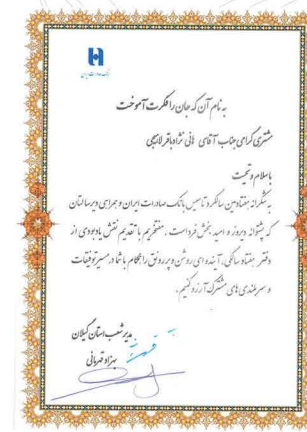 بانک صادرات ایران
به نام آن که جان را فکرت آموخت
مشتری گرامی جناب آقای هانی نژاد باقر لاریجی
با سلام و تحیت
به شکرانه هفتادمین سالگرد تاسیس بانک صادرات ایران و همراهی دیرسالتان
که پشتوانه دیروز و امید بخش فرداست . مفتخریم با تقدیم نقش یادبودی از
دفتر هفتاد سالگی، آینده ای روشن و پر رونق را همگام با شما در مسیر توفیقات
و سربلندی های مشترک آرزو کنیم.
مدیر شعب استان گیلان
بهزاد قهرمانی